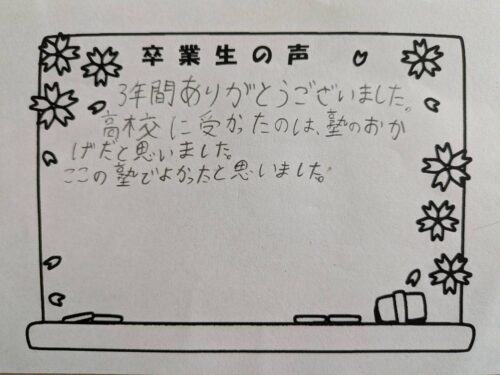 卒業生の声
3年間ありがとうございました。
高校に受かったのは、塾のおか
げだと思いました。
ここの塾でよかったと思いました。